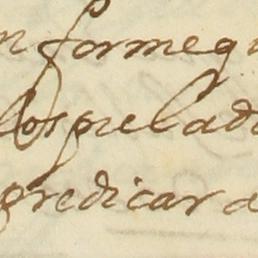 n forme q
los prelad
predicar a